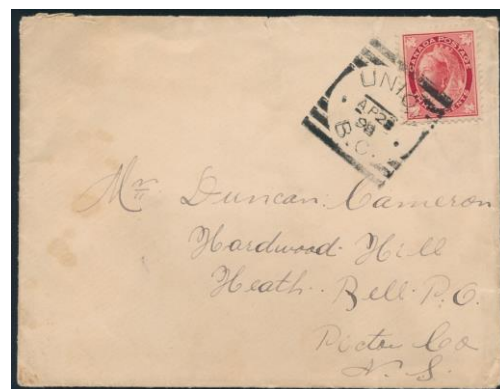 CANADA POSTAGE
CENTS
UNION
AP 2
98
B.C.
Mr. Duncan Cameron
Hardwood Hill
Heath Bell P.O.
Pictou Co
N. S.